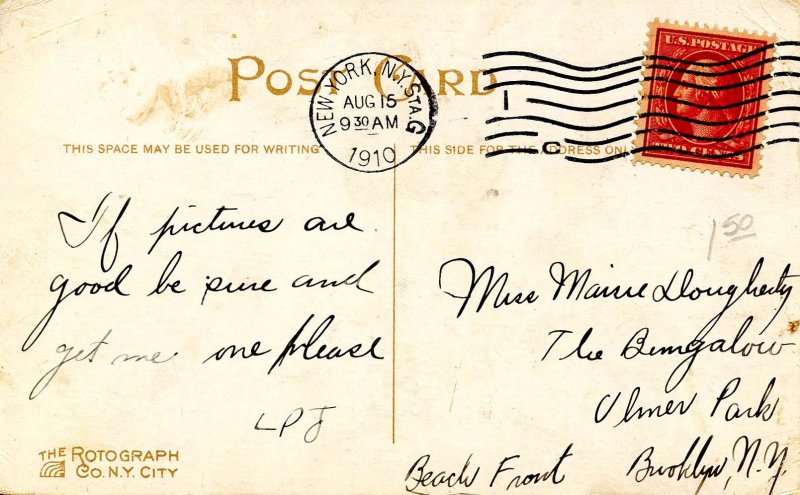 POST CARD
NEW YORK, N.Y. STA. G
AUG 15
9 30 AM
1910
1
C
U.S. POSTAGE
TWO CENTS
THIS SPACE MAY BE USED FOR WRITING
THIS SIDE FOR THE ADDRESS ONL
1 50
If pictures are
good be sure and
get me one please
LPJ
Miss Mamie Dougherty
The Bungalow
Ulmer Park
Beach Front Brooklyn, N.Y.
THE ROTOGRAPH
CO. N.Y. CITY